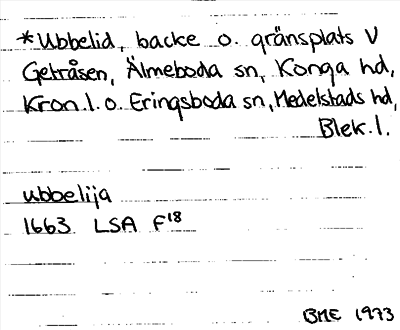 *Ubbelid, backe o. gränsplats V
Getråsen, Älmeboda sn, Konga hd,
Kron.l. o. Eringsboda sn, Medelstads hd,
Blek.l.
ubbelija
1663 LSA F18
BME 1973